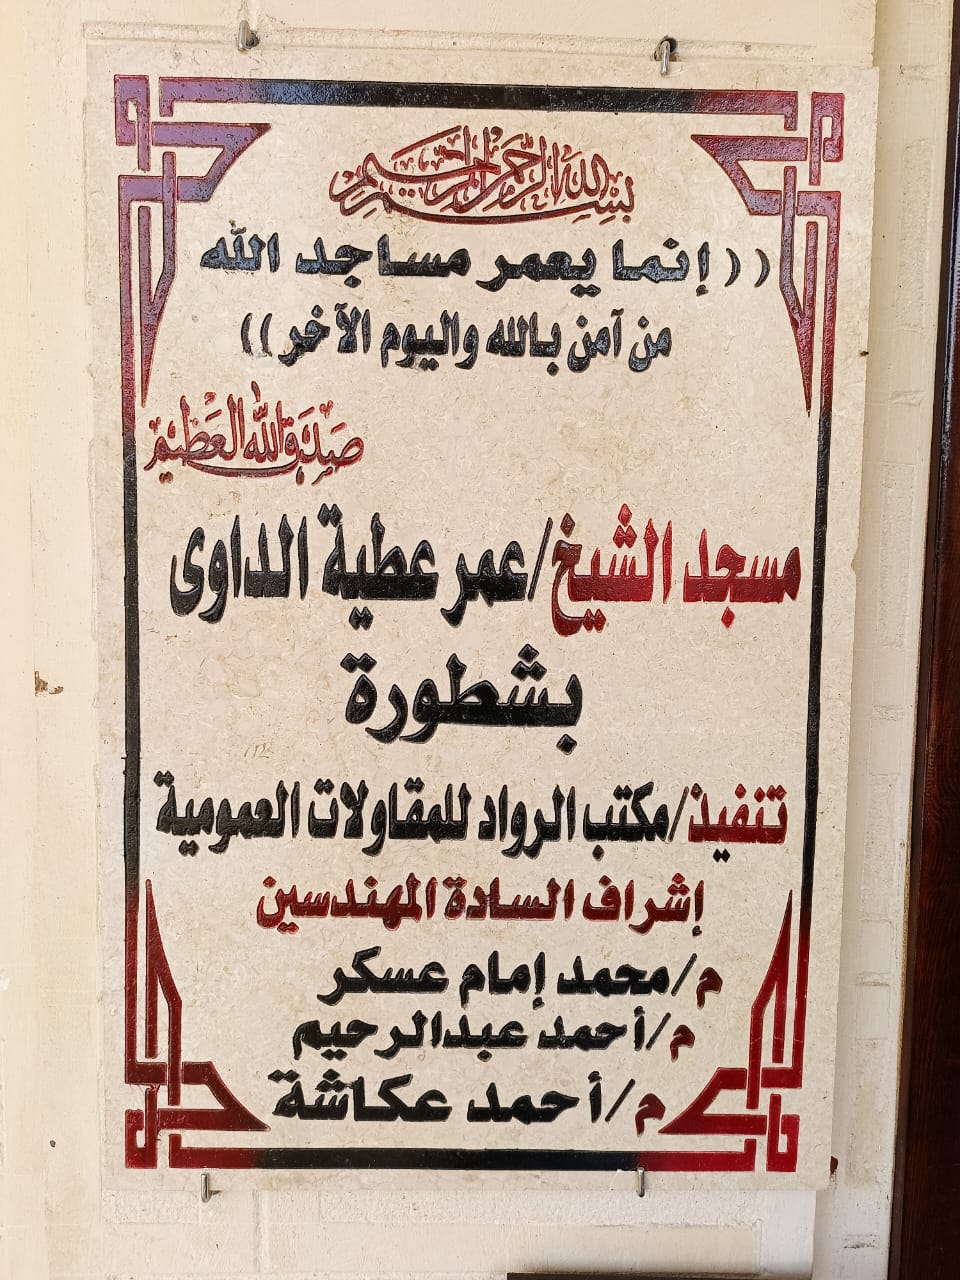 بسم الله الرحمن الرحيم
((إنما يعمر مساجد الله
من آمن بالله واليوم الآخر))
صدق الله العظيم
مسجد الشيخ/عمر عطية الداوى
بشطورة
تنفيذ/مكتب الرواد للمقاولات العمومية
إشراف السادة المهندسين
م/محمد إمام عسكر
م/أحمد عبدالرحيم
م/أحمد عكاشة